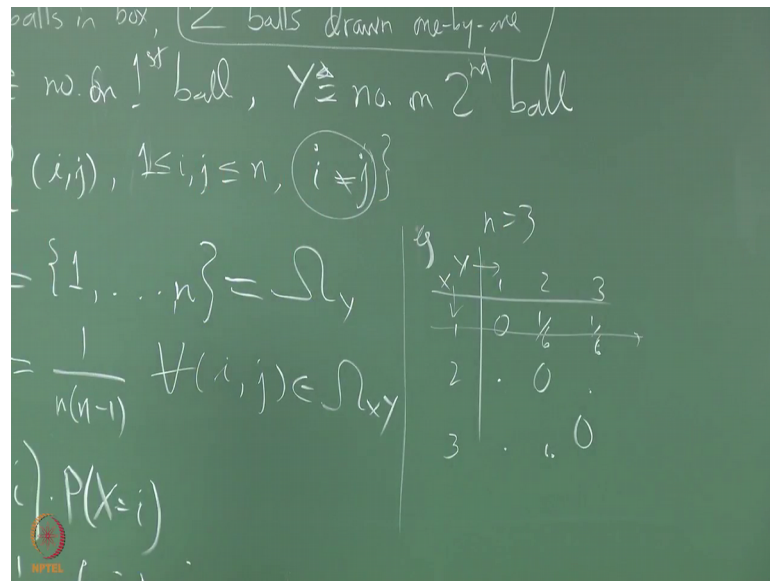 balls in box, 2 balls drawn one-by-one
= no. on 1st ball, Y ≜ no. on 2nd ball
(i,j), 1≤i,j≤n, i≠j}
= {1, ... n} = Ω_Y
= 1/n(n-1) ∀(i,j)∈Ω_XY
i). P(X=i)
eg n=3
X↓ Y→ 1 2 3
1 0 1/6 1/6
2 . 0 .
3 . . 0
NPTEL